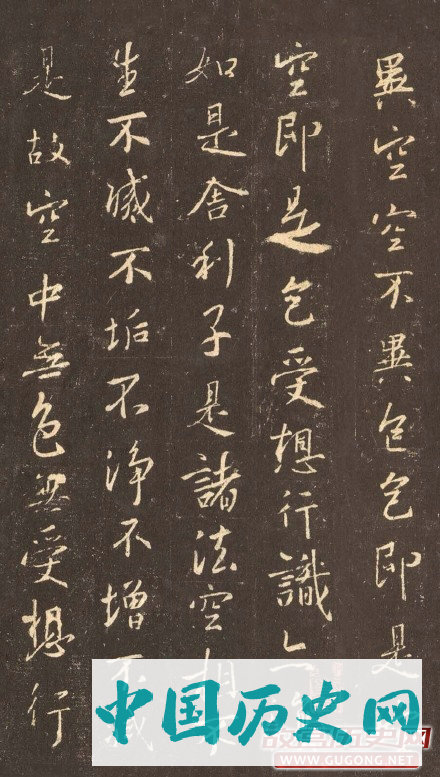 異空空不異色色即是
空即是色受想行識亦
如是舍利子是諸法空相不
生不滅不垢不淨不增不減
是故空中無色無受想行
中国历史网
WWW.GUGONG.NET